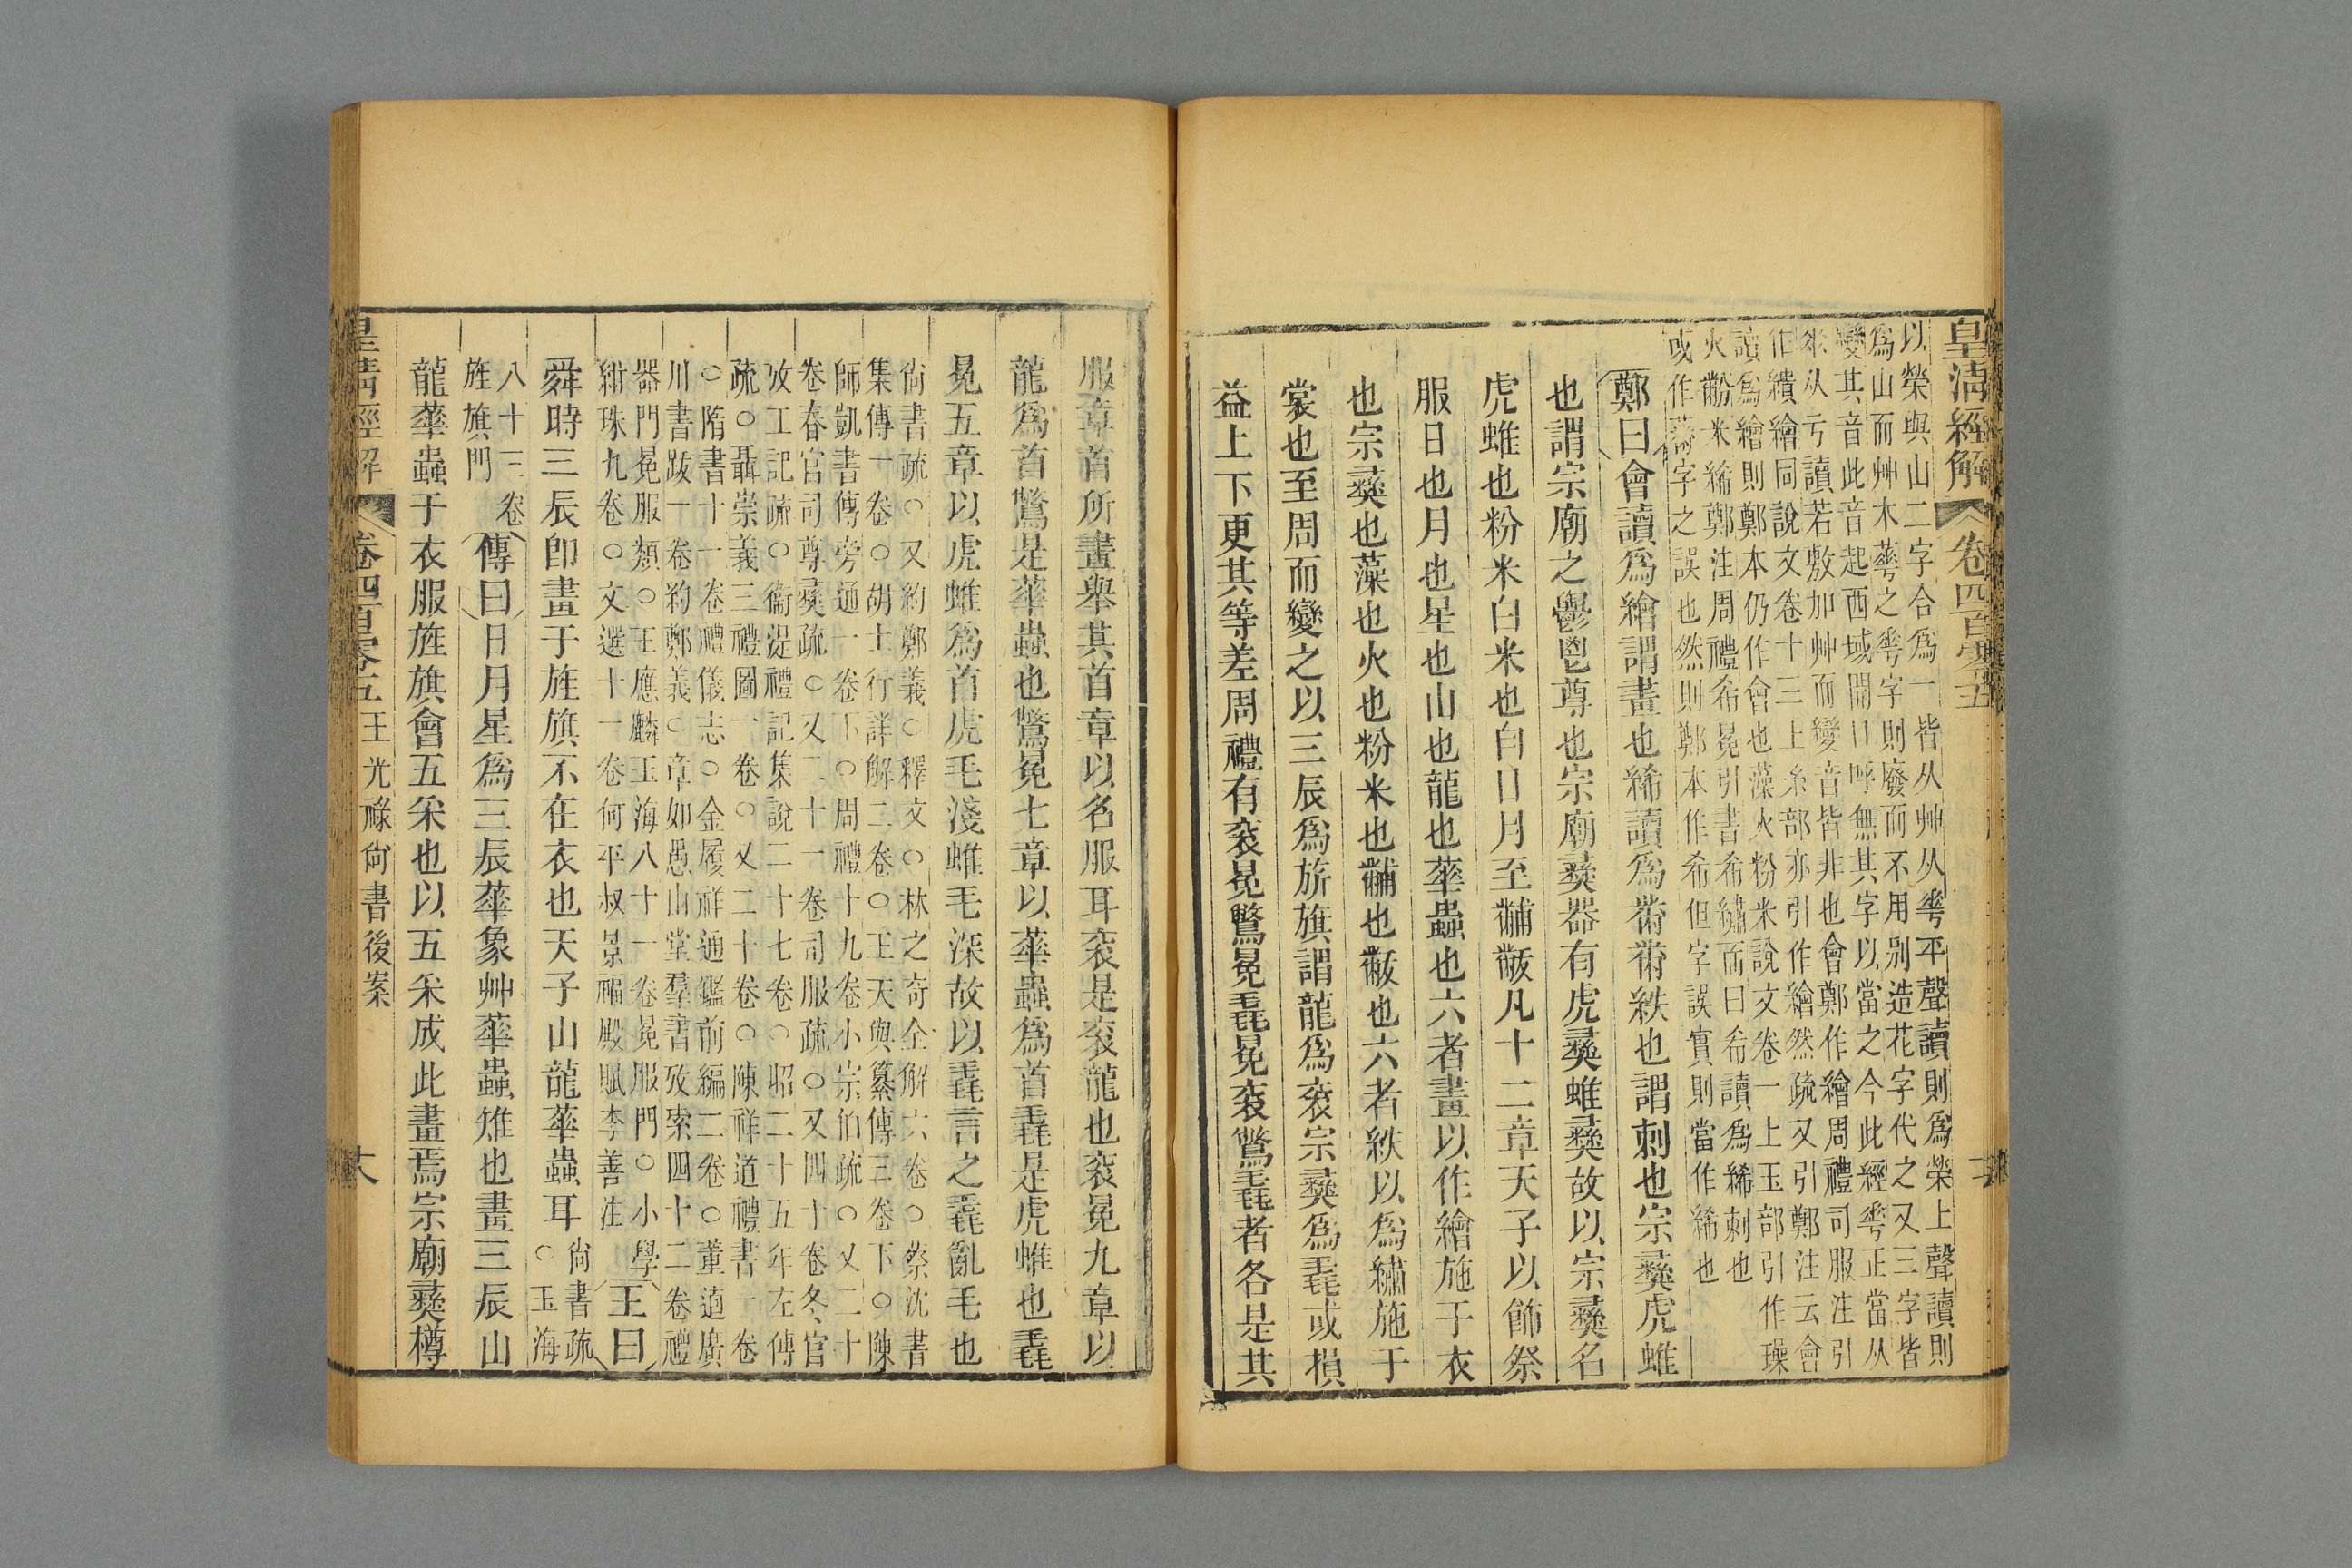 皇清經解 卷四百零五
以榮與山二字合爲一皆从艸从𠌶平聲讀則爲榮上聲讀則
爲山而艸木蕐之𠌶字則廢而不用别造花字代之又三字皆
變其音此音起西域開口呼無其字以當之今此經𠌶正當从
𠂹从亏讀若敷加艸而變音皆非也會鄭作繪周禮司服注引
作繢繪同說文卷十三上糸部亦引作繪然疏又引鄭注云會
讀爲繪則鄭本仍作會也藻火粉米說文卷一上玉部引作璪
火黺米絺鄭注周禮希冕引書希繡而曰希讀爲絺刺也
或作黹字之誤也然則鄭本作希但字誤實則當作絺也
鄭曰會讀爲繪謂畫也絺讀爲黹黹紩也謂刺也宗彞虎蜼
也謂宗廟之鬱鬯尊也宗廟彞器有虎彞蜼彞故以宗彞名
虎蜼也粉米白米也自日月至黼黻凡十二章天子以飾祭
服日也月也星也山也龍也蕐蟲也六者畫以作繪施于衣
也宗彞也藻也火也粉米也黼也黻也六者紩以爲繡施于
裳也至周而變之以三辰爲旂旗謂龍爲衮宗彞爲毳或損
益上下更其等差周禮有衮冕鷩冕毳冕衮鷩毳者各是其
服章首所畫舉其首章以名服耳衮是衮龍也衮冕九章以
龍爲首鷩是蕐蟲也鷩冕七章以蕐蟲爲首毳是虎蜼也毳
冕五章以虎蜼爲首虎毛淺蜼毛深故以毳言之毳亂毛也
尙書疏○又約鄭義○釋文○林之奇全解六卷○蔡沈書
集傳一卷○胡士行詳解二卷○王天與纂傳三卷下○陳
師凱書傳旁通一卷下○周禮十九卷小宗伯疏○又二十
卷春官司尊彞疏○又二十一卷司服疏○又四十卷冬官
攷工記疏○衞湜禮記集說二十七卷○昭二十五年左傳
疏○聶崇義三禮圖一卷○又二十卷○陳祥道禮書一卷
○隋書十一卷禮儀志○金履祥通鑑前編二卷○董逌廣
川書跋一卷約鄭義○章如愚山堂羣書攷索四十二卷禮
器門冕服類○王應麟玉海八十一卷冕服門○小學
紺珠九卷○文選十一卷何平叔景福殿賦李善注
王曰
舜時三辰卽畫于旌旗不在衣也天子山龍蕐蟲耳
尙書疏
○玉海
八十三卷
旌旗門
傳曰日月星爲三辰蕐象艸蕐蟲雉也畫三辰山
龍蕐蟲于衣服旌旗會五采也以五采成此畫焉宗廟彞樽
皇淸經解 卷四百零五 王光祿尙書後案 六